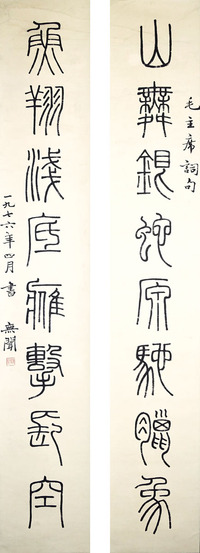 毛主席詞句
山舞銀蛇原馳臘象
魚翔淺底鷹擊長空
一九七六年四月書 無聞